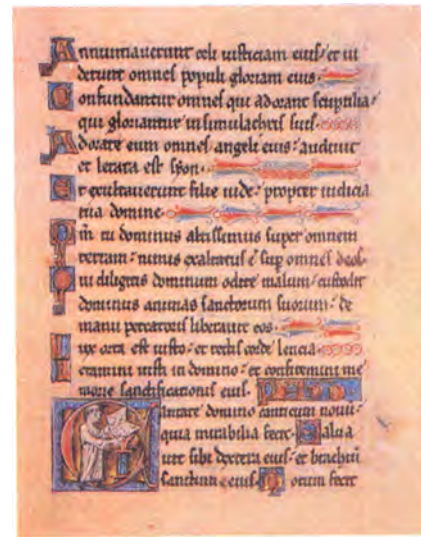 Annuntiaverunt celi iusticiam eius: et vi
derunt omnes populi gloriam eius.
Confundantur omnes qui adorant sculptilia:
qui gloriantur in simulachris suis.
Adorate eum omnes angeli eius: audivit
et letata est syon.
Et exultaverunt filie iude: propter iudicia
tua domine.
Qm tu dominus altissimus super omnem
terram: nimis exaltatus e sup omnes deos.
Qui diligitis dominum odite malum: custodit
dominus animas sanctorum suorum: de
manu peccatoris liberavit eos.
Lux orta est iusto: et rectis corde leticia.
Letamini iusti in domino: et confitemini me
morie sanctificationis eius.
Cantate domino canticum novu:
quia mirabilia fecit. Salva
vit sibi dextera eius: et brachiu
sanctum eius. Notum fecit